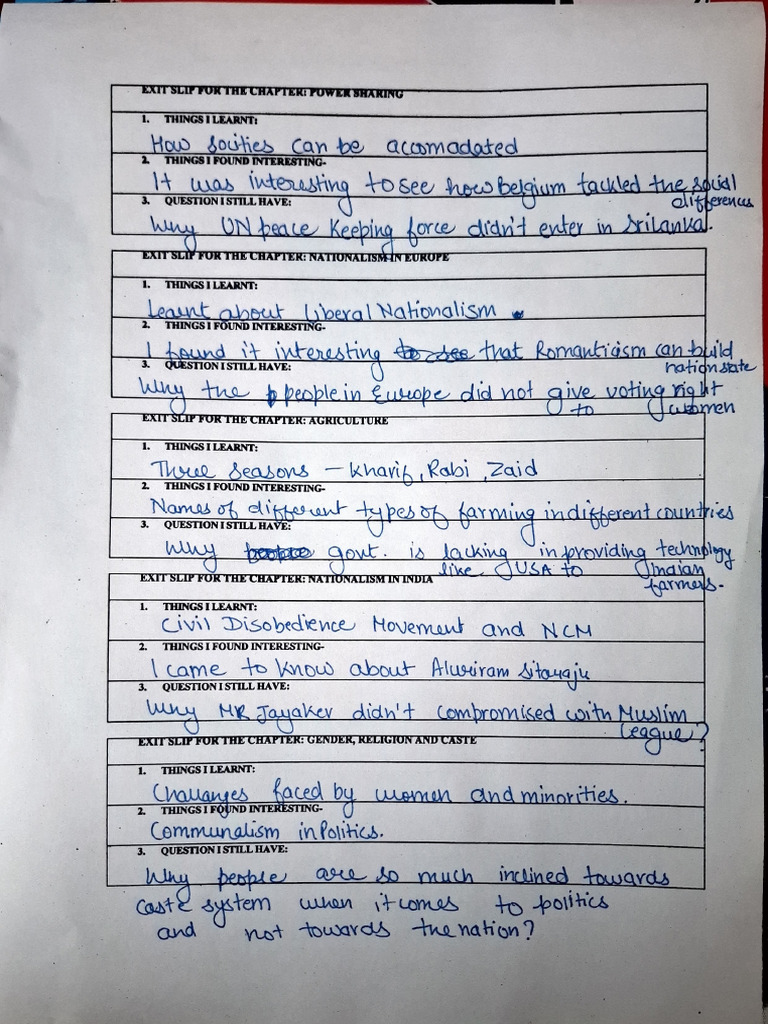 EXIT SLIP FOR THE CHAPTER: POWER SHARING
1. THINGS I LEARNT:
How socities can be accomadated
2. THINGS I FOUND INTERESTING-
It was interesting to see how Belgium tackled the social
differences
3. QUESTION I STILL HAVE:
Why UN peace Keeping force didn't enter in Srilanka.
EXIT SLIP FOR THE CHAPTER: NATIONALISM IN EUROPE
1. THINGS I LEARNT:
Learnt about Liberal Nationalism
2. THINGS I FOUND INTERESTING-
I found it interesting to see that Romanticism can build
nation state
3. QUESTION I STILL HAVE:
Why the people in Europe did not give voting right
to women
EXIT SLIP FOR THE CHAPTER: AGRICULTURE
1. THINGS I LEARNT:
Three seasons - Kharif, Rabi, Zaid
2. THINGS I FOUND INTERESTING-
Names of different types of farming in different countries
3. QUESTION I STILL HAVE:
Why govt. is lacking in providing technology
like USA to Indian
farmers.
EXIT SLIP FOR THE CHAPTER: NATIONALISM IN INDIA
1. THINGS I LEARNT:
Civil Disobedience Movement and NCM
2. THINGS I FOUND INTERESTING-
I came to know about Aluriram Sitaraju
3. QUESTION I STILL HAVE:
Why MR Jayaker didn't compromised with Muslim
League?
EXIT SLIP FOR THE CHAPTER: GENDER, RELIGION AND CASTE
1. THINGS I LEARNT:
Challanges faced by women and minorities.
2. THINGS I FOUND INTERESTING-
Communalism in Politics.
3. QUESTION I STILL HAVE:
Why people are so much inclined towards
caste system when it comes to politics
and not towards the nation?